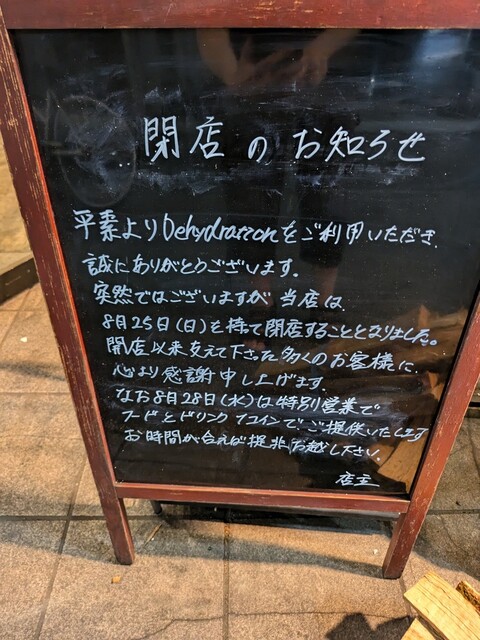 閉店のお知らせ
平素よりDehydrationをご利用いただき
誠にありがとうございます。
突然ではございますが当店は、
8月25日(日)を持て閉店することとなりました。
開店以来支えて下さった多くのお客様に、
心より感謝申し上げます。
なお8月28日(水)は特別営業で
フードとドリンク1コインでご提供いたします
お時間が合えば提非お越し下さい。
店主